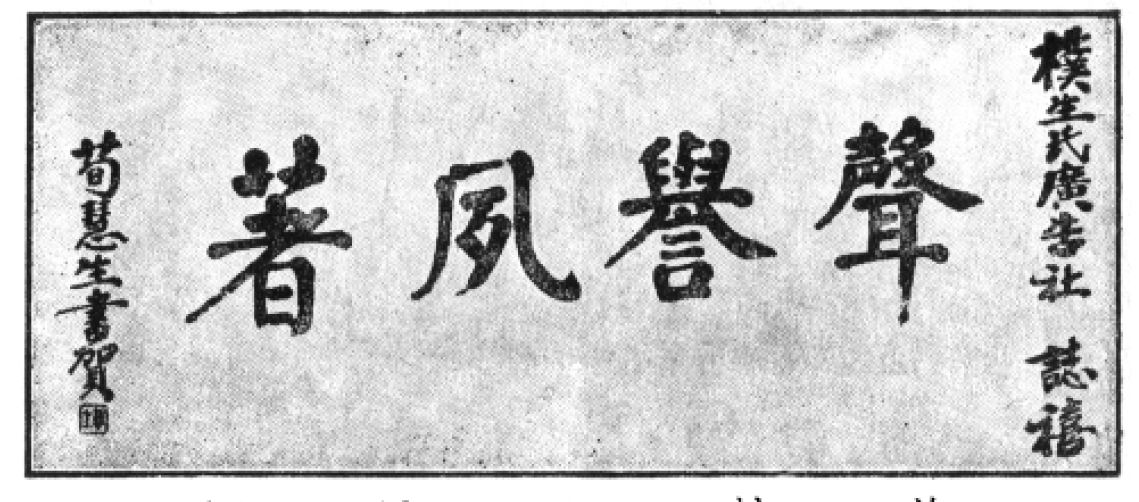 樸生氏廣告社 誌禧
聲譽夙著
荀慧生書賀